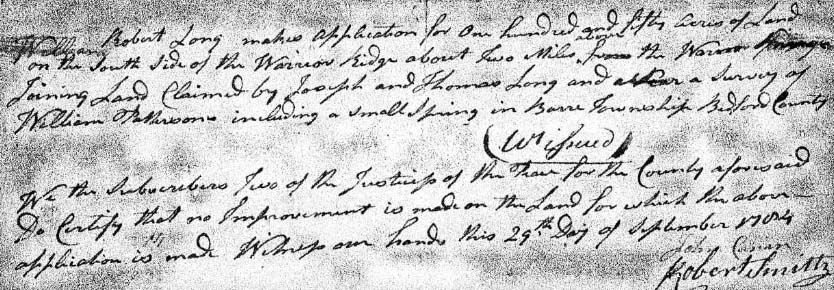 Robert Long makes application for One hundred and fifty Acres of Land
on the South Side of the Warrior Ridge about Two Miles above the Warrior Springs
Joining Land Claimed by Joseph and Thomas Long and a Survey of
William Pattersons including a small Spring in Barre Township Bedford County
(Wt issued)
We the Subscribers Two of the Justices of the Peace for the County aforesaid
Do Certify that no Improvement is made on the Land for which the above
application is made Witness our hands this 29th Day of September 1784
John Canan
Robert Smith